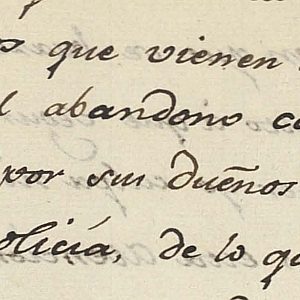 que vienen
abandono
por sus dueños
olicía, de lo